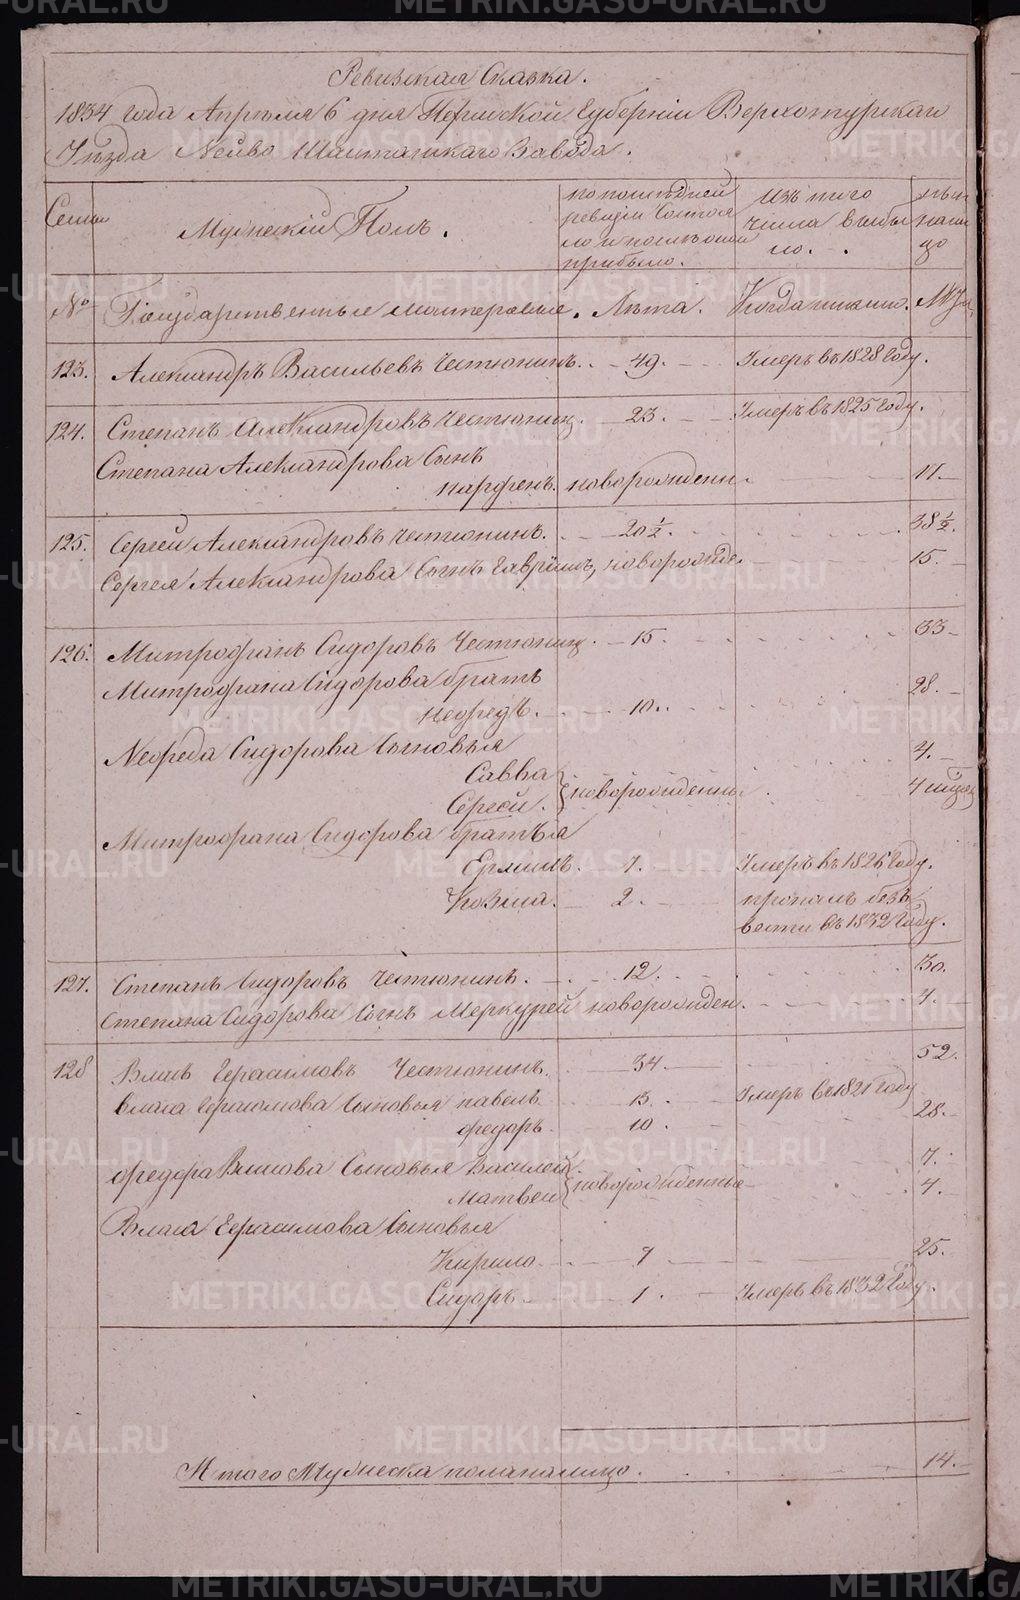 Ревизская Сказка.
1834 года Апреля 6 дня Пермской Губернии Верхотурскаго
Уезда Нейво Шайтанскаго Завода.
Семьи
Мужескій Полъ.
по последней ревизіи состояло и после оной прибыло.
Изъ того числа выбыло.
ныне на лицо
№
Государственные мастеровые. Лета. Когда именно. Лета
123. Александръ Васильевъ Честюнинъ. 49. Умеръ въ 1828 году.
124. Степанъ Александровъ Честюнинъ. 23. Умеръ въ 1825 году.
Степана Александрова Сынъ
парфенъ. новорожденн. 11.
125. Сергеи Александровъ Честюнинъ. 20 ½ 38 ½.
Сергея Александрова Сынъ Гаврiилъ, новорожде. 15.
126. Митрофанъ Сидоровъ Честюнинъ. 15. 33
Митрофана Сидорова братъ
нефредъ. 10. 28.
Нефреда Сидорова Сыновья
Савва 4.
Сергеи. новорожденны 4 месяц
Митрофана Сидорова братья
Ермилъ. 7. Умеръ въ 1826 году.
Козма. 2. пропалъ безъ
вести въ 1832 году.
127. Степанъ Сидоровъ Честюнинъ. 12. 30.
Степана Сидорова Сынъ Меркурей новорожден. 4.
128 Власъ Герасимовъ Честюнинъ. 34. 52.
Власа Герасимова Сыновья павелъ 13. Умеръ въ 1821 году
федоръ. 10. 28.
федора Власова Сыновья Василей. 7.
Матвеи новорожденные 4.
Власа Герасимова Сыновья
Кирило 7 25.
Сидоръ 1. Умеръ въ 1832 году.
Итого Мужеска пола на лицо. 14.
METRIKI.GASO-URAL.RU